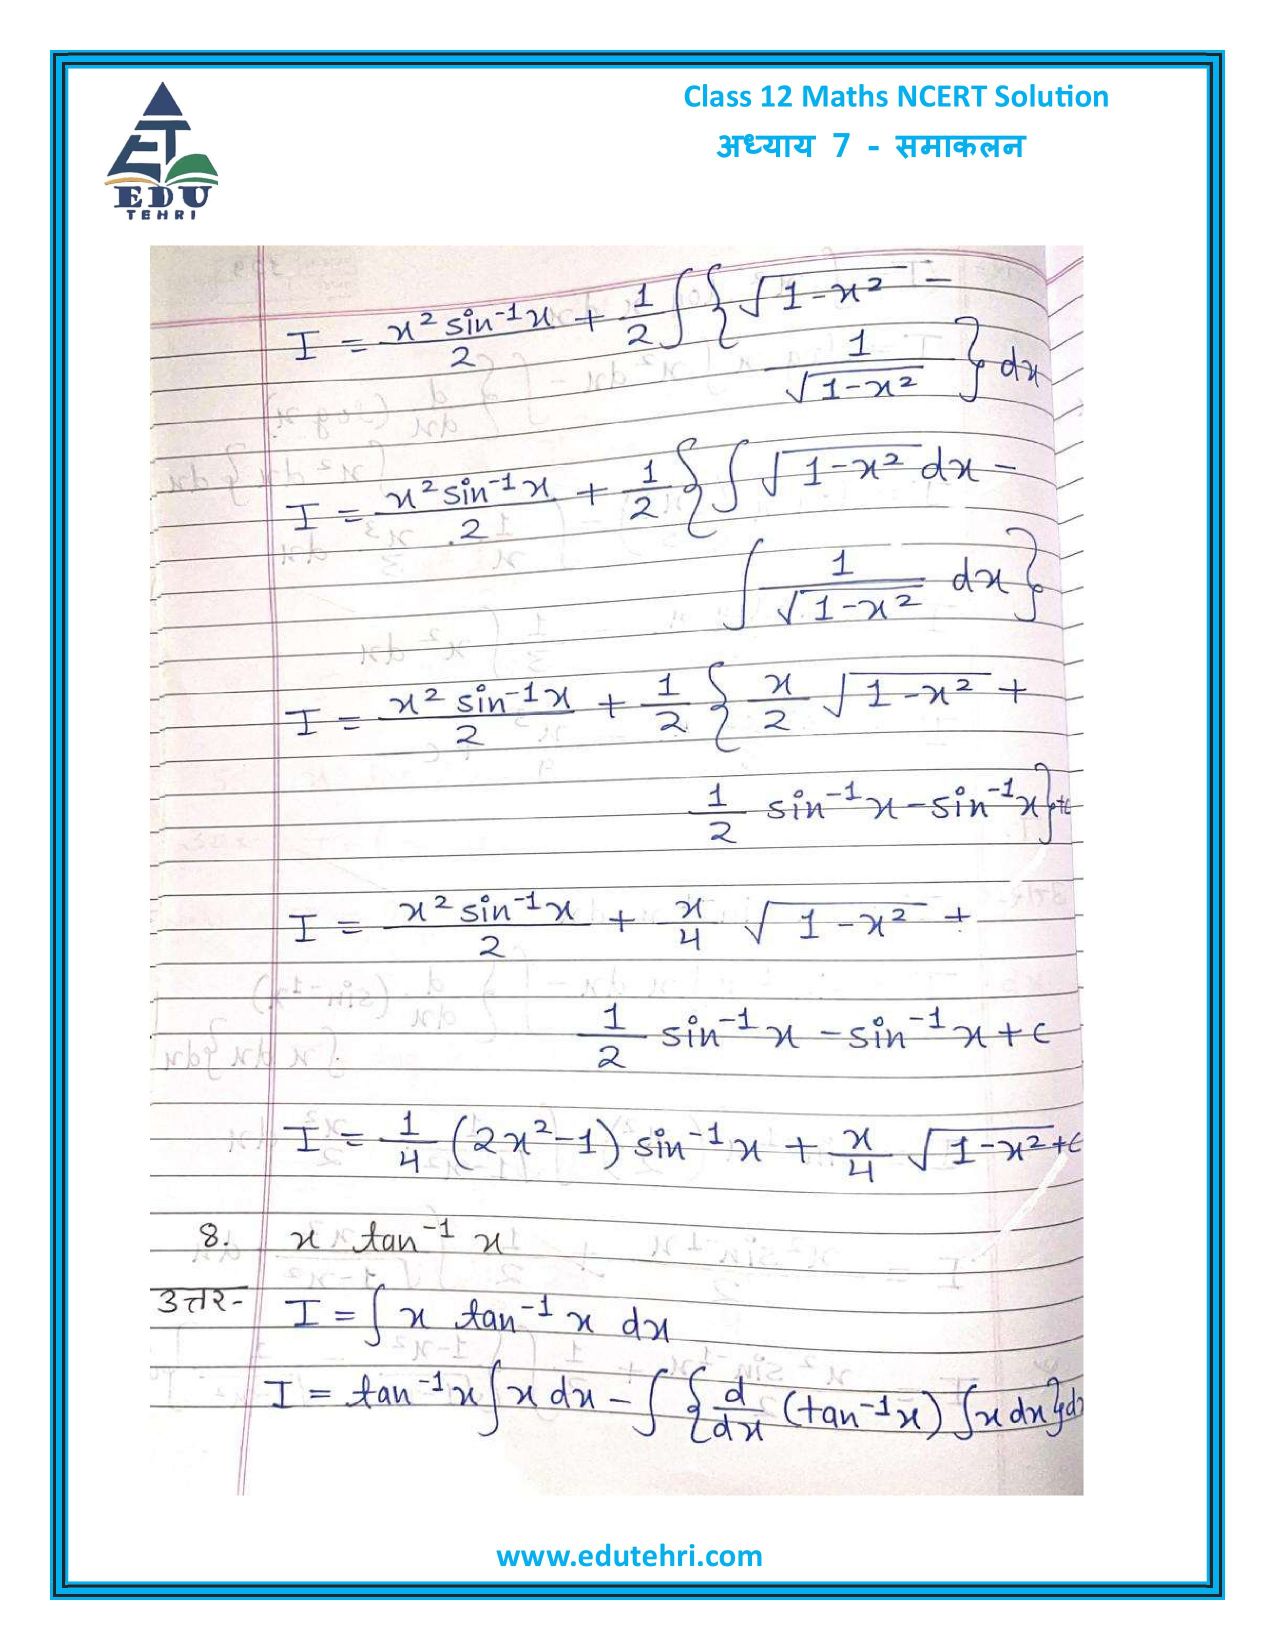 Class 12 Maths NCERT Solution
अध्याय 7 - समाकलन
EDU
TEHRI
I = x² sin⁻¹x / 2 + 1/2 ∫ { √1-x² -
1/√1-x² } dx
I = x² sin⁻¹x / 2 + 1/2 { ∫ √1-x² dx -
∫ 1/√1-x² dx }
I = x² sin⁻¹x / 2 + 1/2 { x/2 √1-x² +
1/2 sin⁻¹x - sin⁻¹x } + c
I = x² sin⁻¹x / 2 + x/4 √1-x² +
1/2 sin⁻¹x - sin⁻¹x + c
I = 1/4 (2x²-1) sin⁻¹x + x/4 √1-x² + c
8. x tan⁻¹ x
उत्तर- I = ∫ x tan⁻¹ x dx
I = tan⁻¹x ∫ x dx - ∫ { d/dx (tan⁻¹x) ∫ x dx } dx
www.edutehri.com